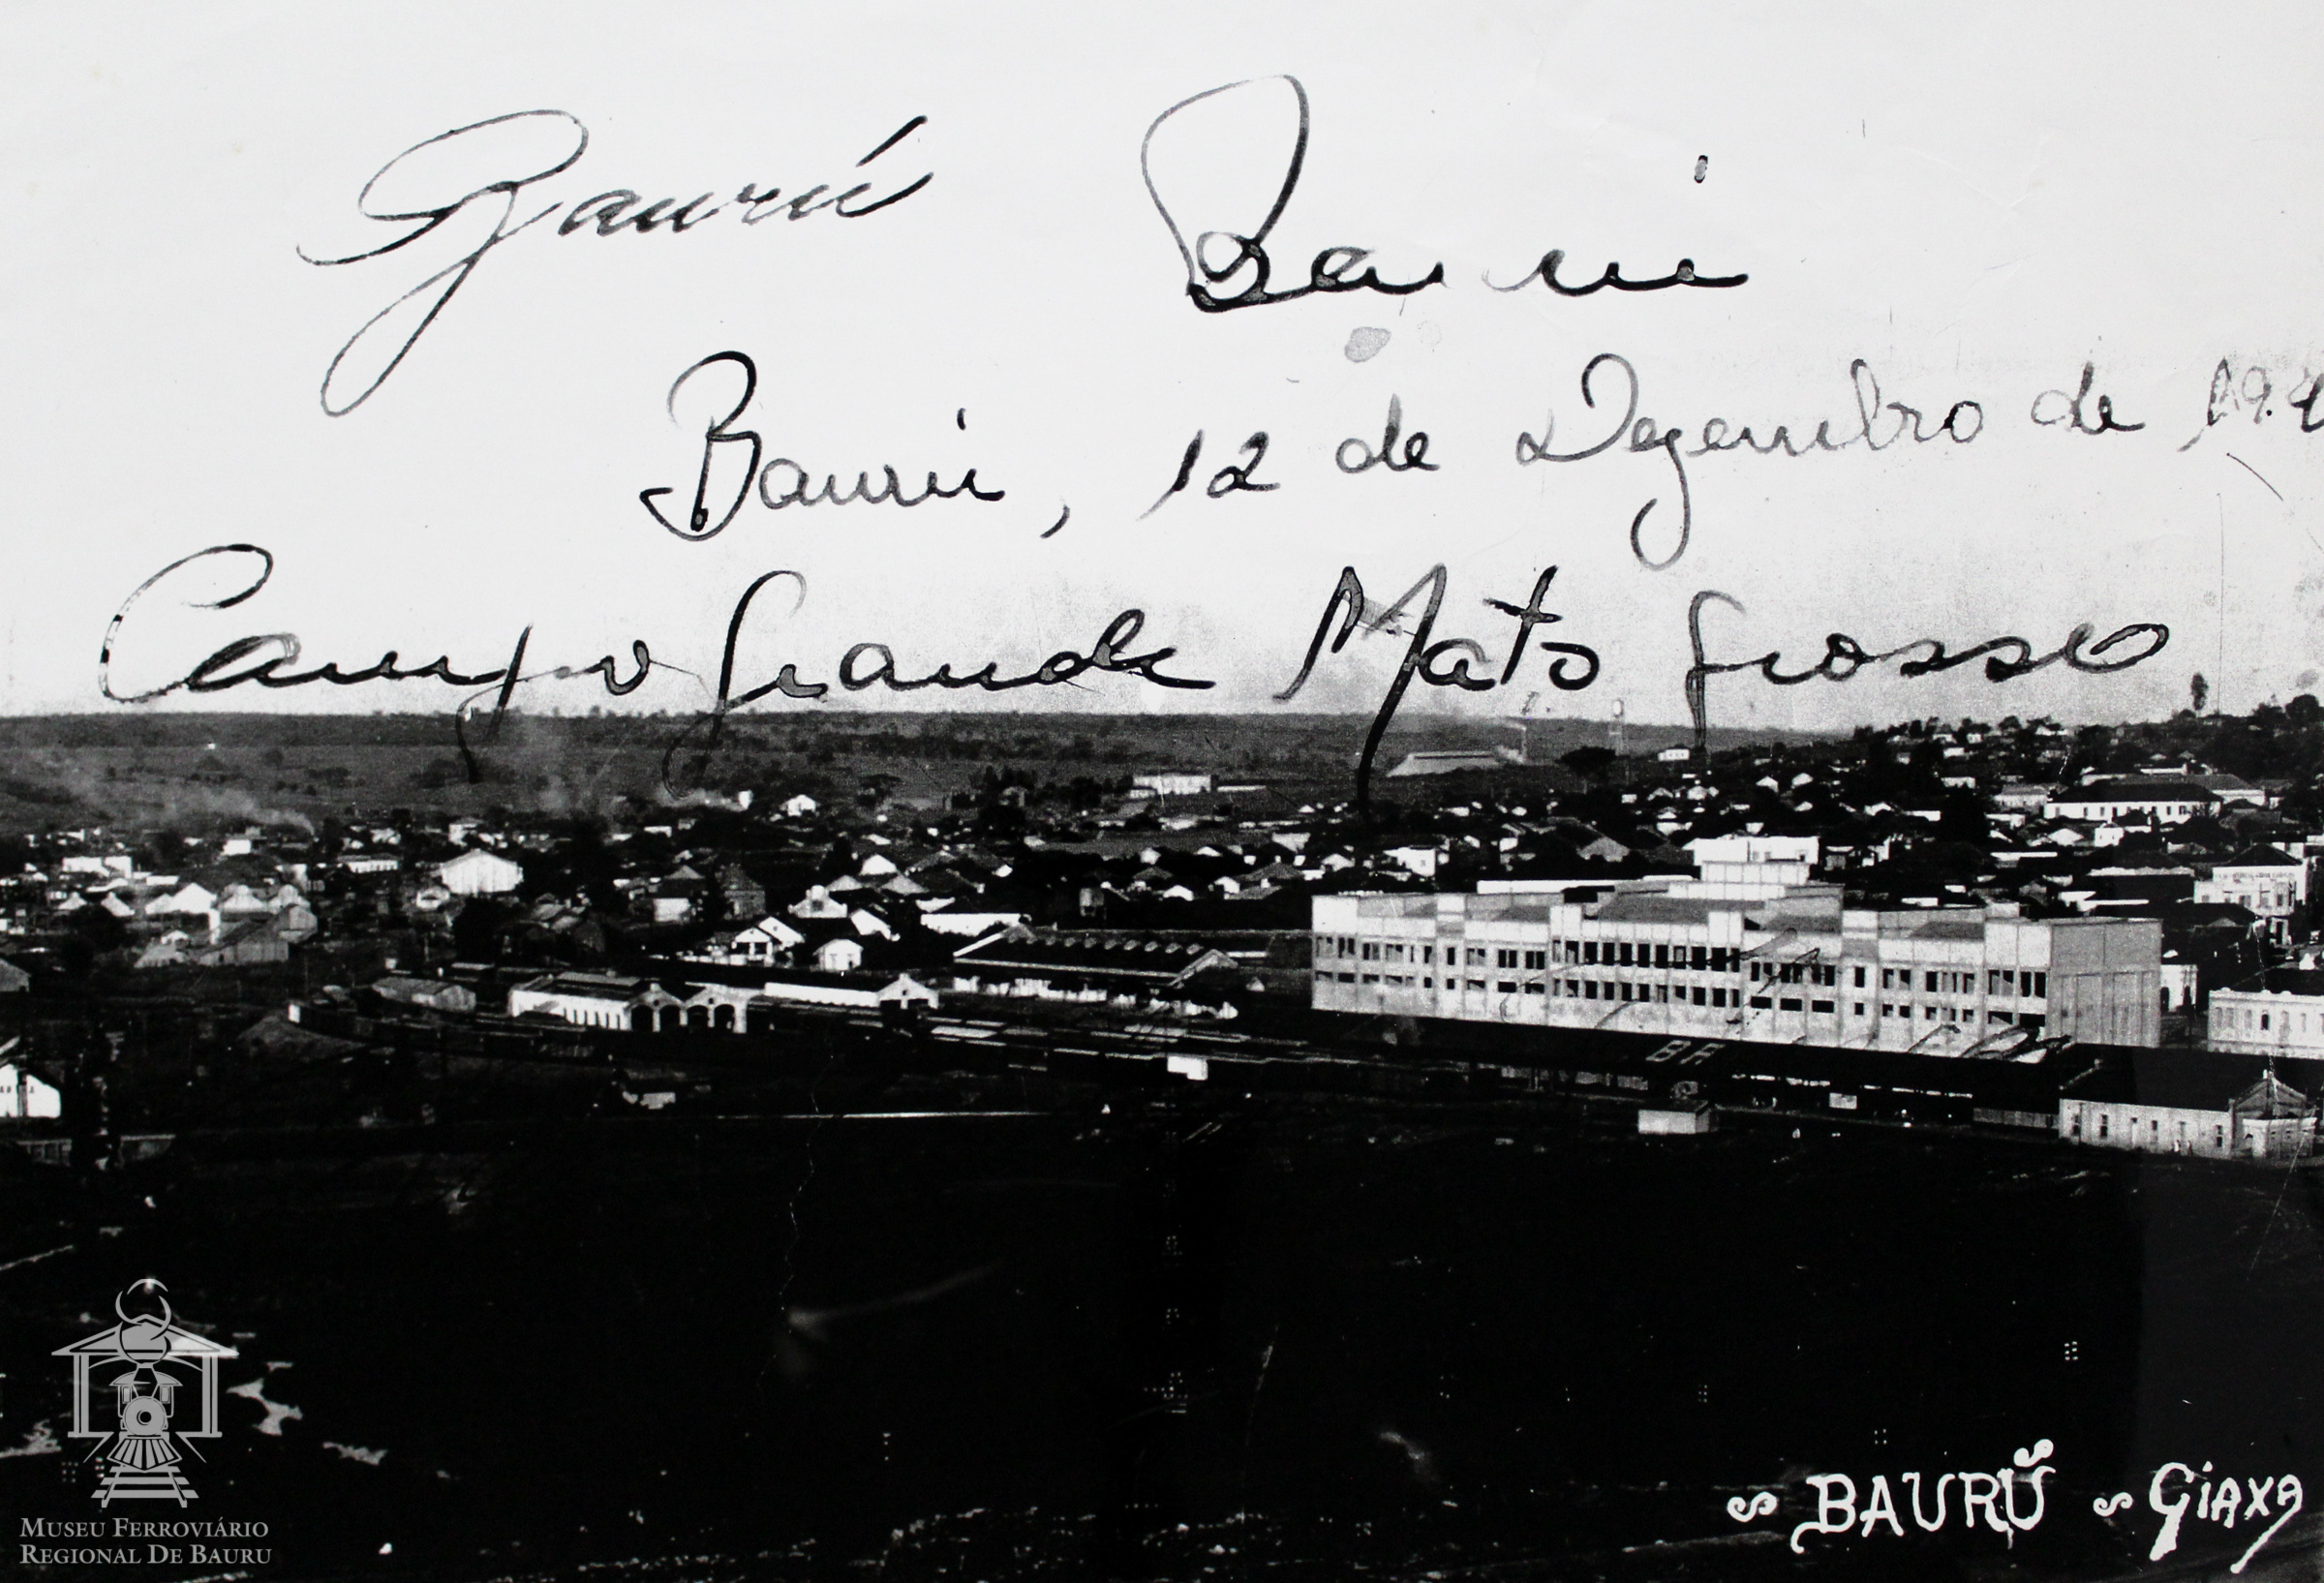 Baurú
Bauru
Bauru, 12 de Dezembro de 194
Campo Grande Mato Grosso
BA
BAURÚ Giaxa
MUSEU FERROVIÁRIO
REGIONAL DE BAURU